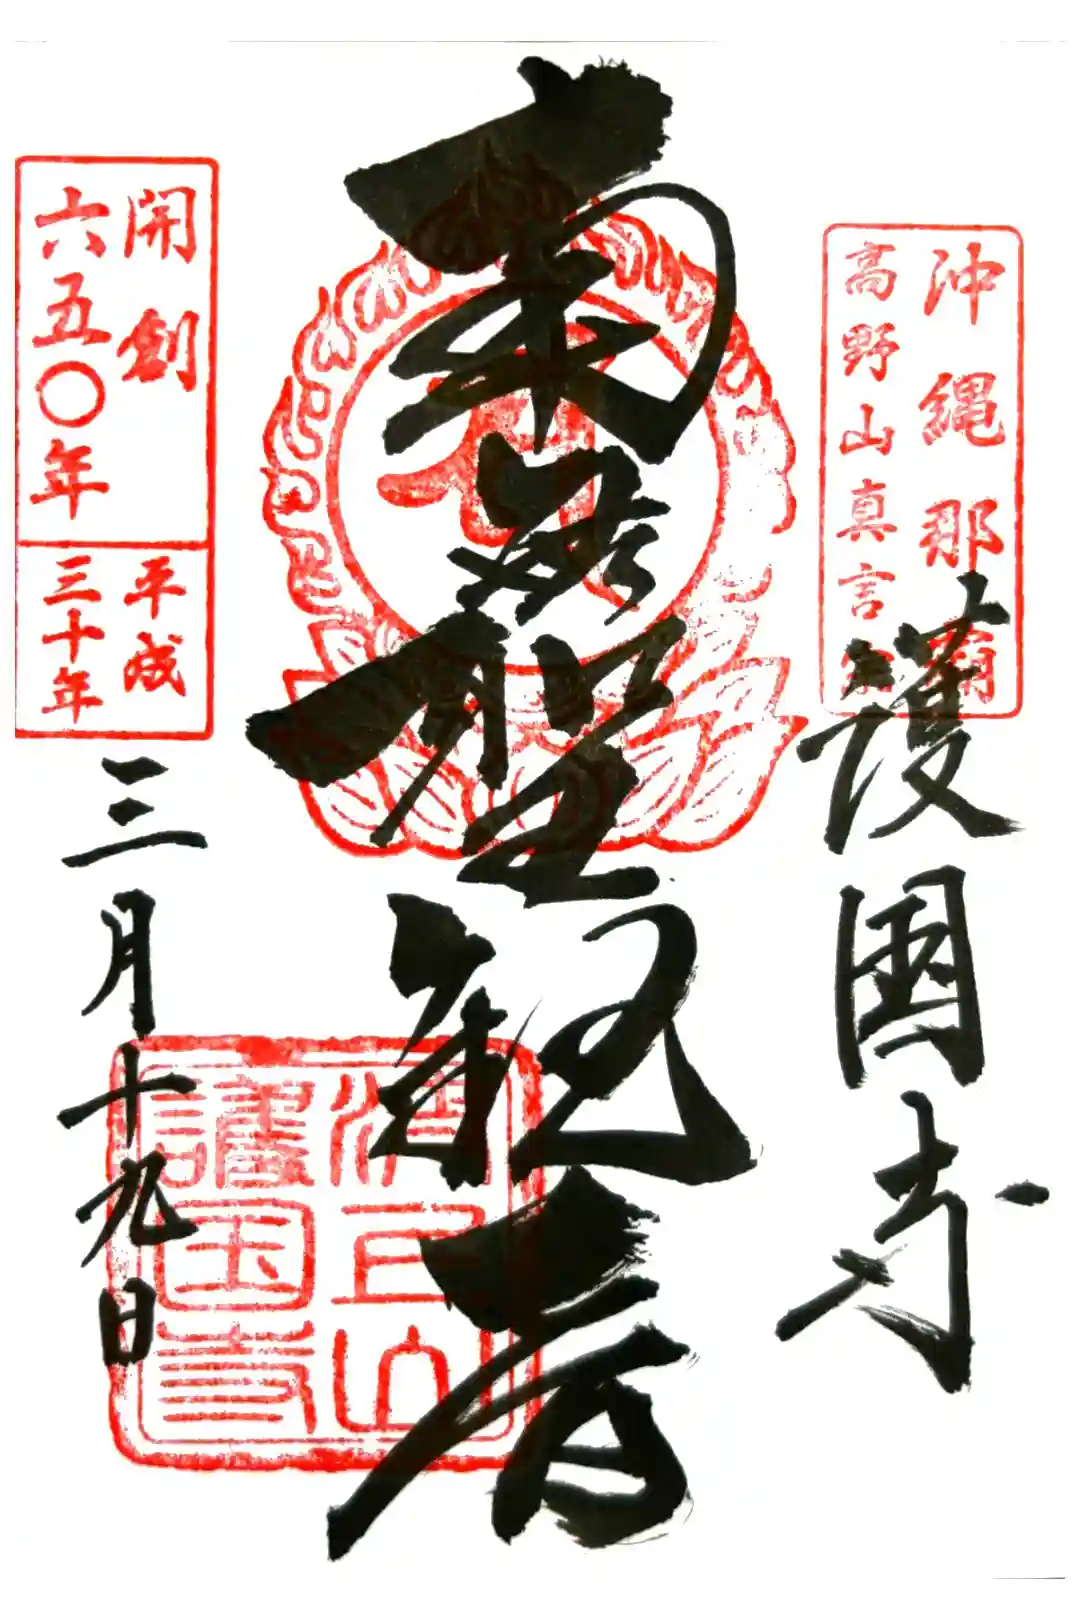 沖縄那覇
高野山真言宗
護国寺
南無聖観音
開創
六五〇年
平成
三十年
三月十九日
波上山
護国寺